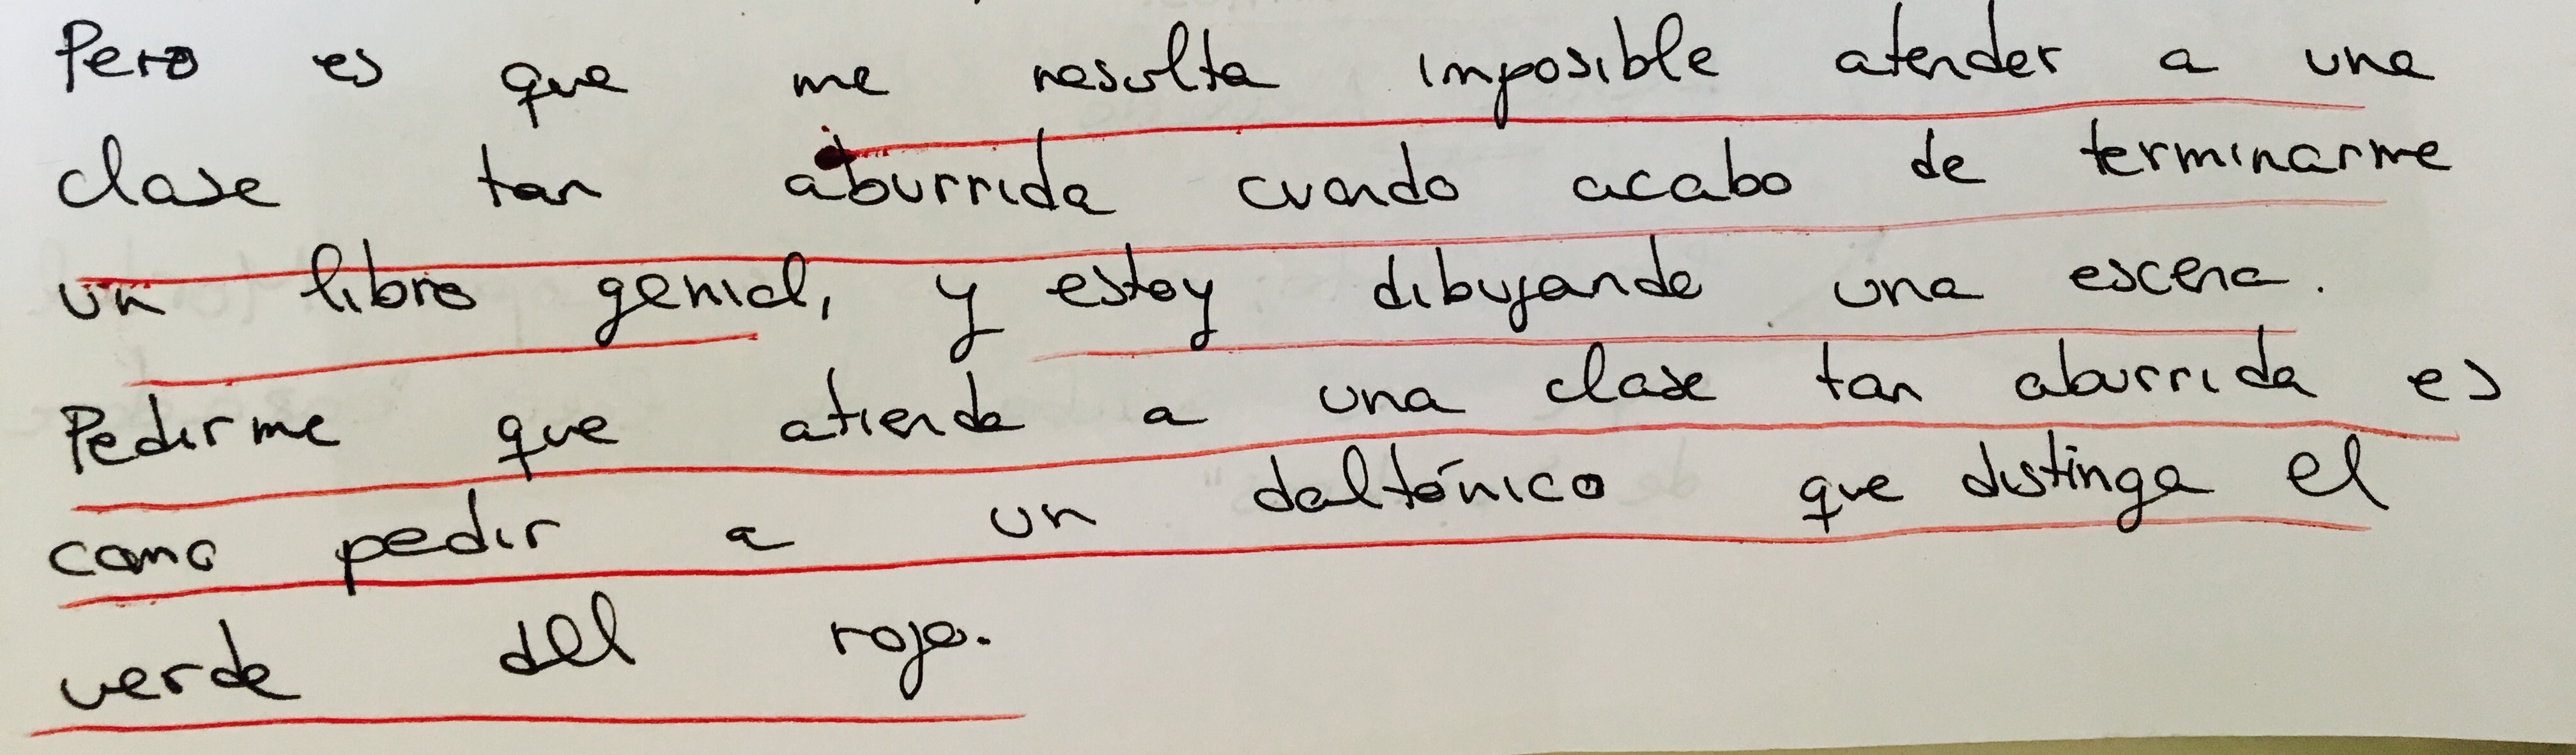 Pero es que me resulta imposible atender a una
clase tan aburrida cuando acabo de terminarme
un libro genial, y estoy dibujando una escena.
Pedirme que atienda a una clase tan aburrida es
como pedir a un daltónico que distinga el
verde del rojo.